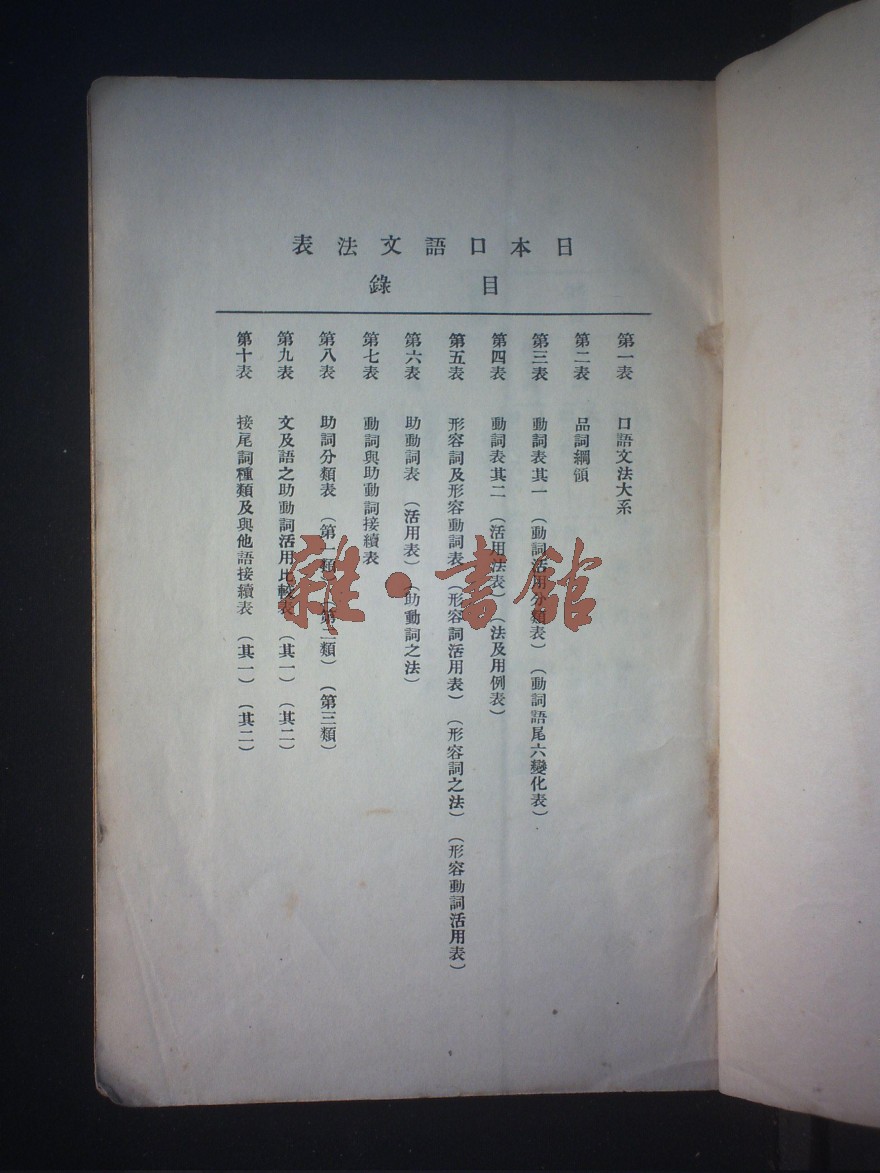 日本口語文法表
目錄
第一表 口語文法大系
第二表 品詞綱領
第三表 動詞表其一 （動詞活用分類表） （動詞語尾六變化表）
第四表 動詞表其二 （活用法表） （法及用例表）
第五表 形容詞及形容動詞表 （形容詞活用表） （形容詞之法） （形容動詞活用表）
第六表 助動詞表 （活用表） （助動詞之法）
第七表 動詞與助動詞接續表
第八表 助詞分類表 （第一類） （第二類） （第三類）
第九表 文及語之助動詞活用比較表 （其一） （其二）
第十表 接尾詞種類及與他語接續表 （其一） （其二）
雜·書館